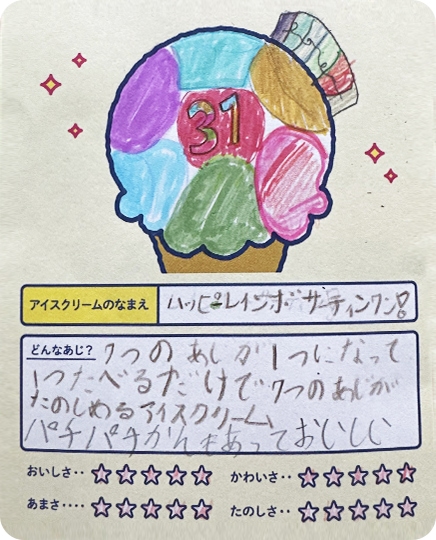 31
アイスクリームのなまえ
ハッピーレインボーサーティンワン!
どんなあじ?
7つの あじが1つになって
1つたべるだけで7つのあじが
たのしめるアイスクリーム
パチパチかんもあっておいしい
おいしさ‥ ☆☆☆☆☆
かわいさ‥ ☆☆☆☆☆
あまさ‥‥ ☆☆☆☆☆
たのしさ‥ ☆☆☆☆☆